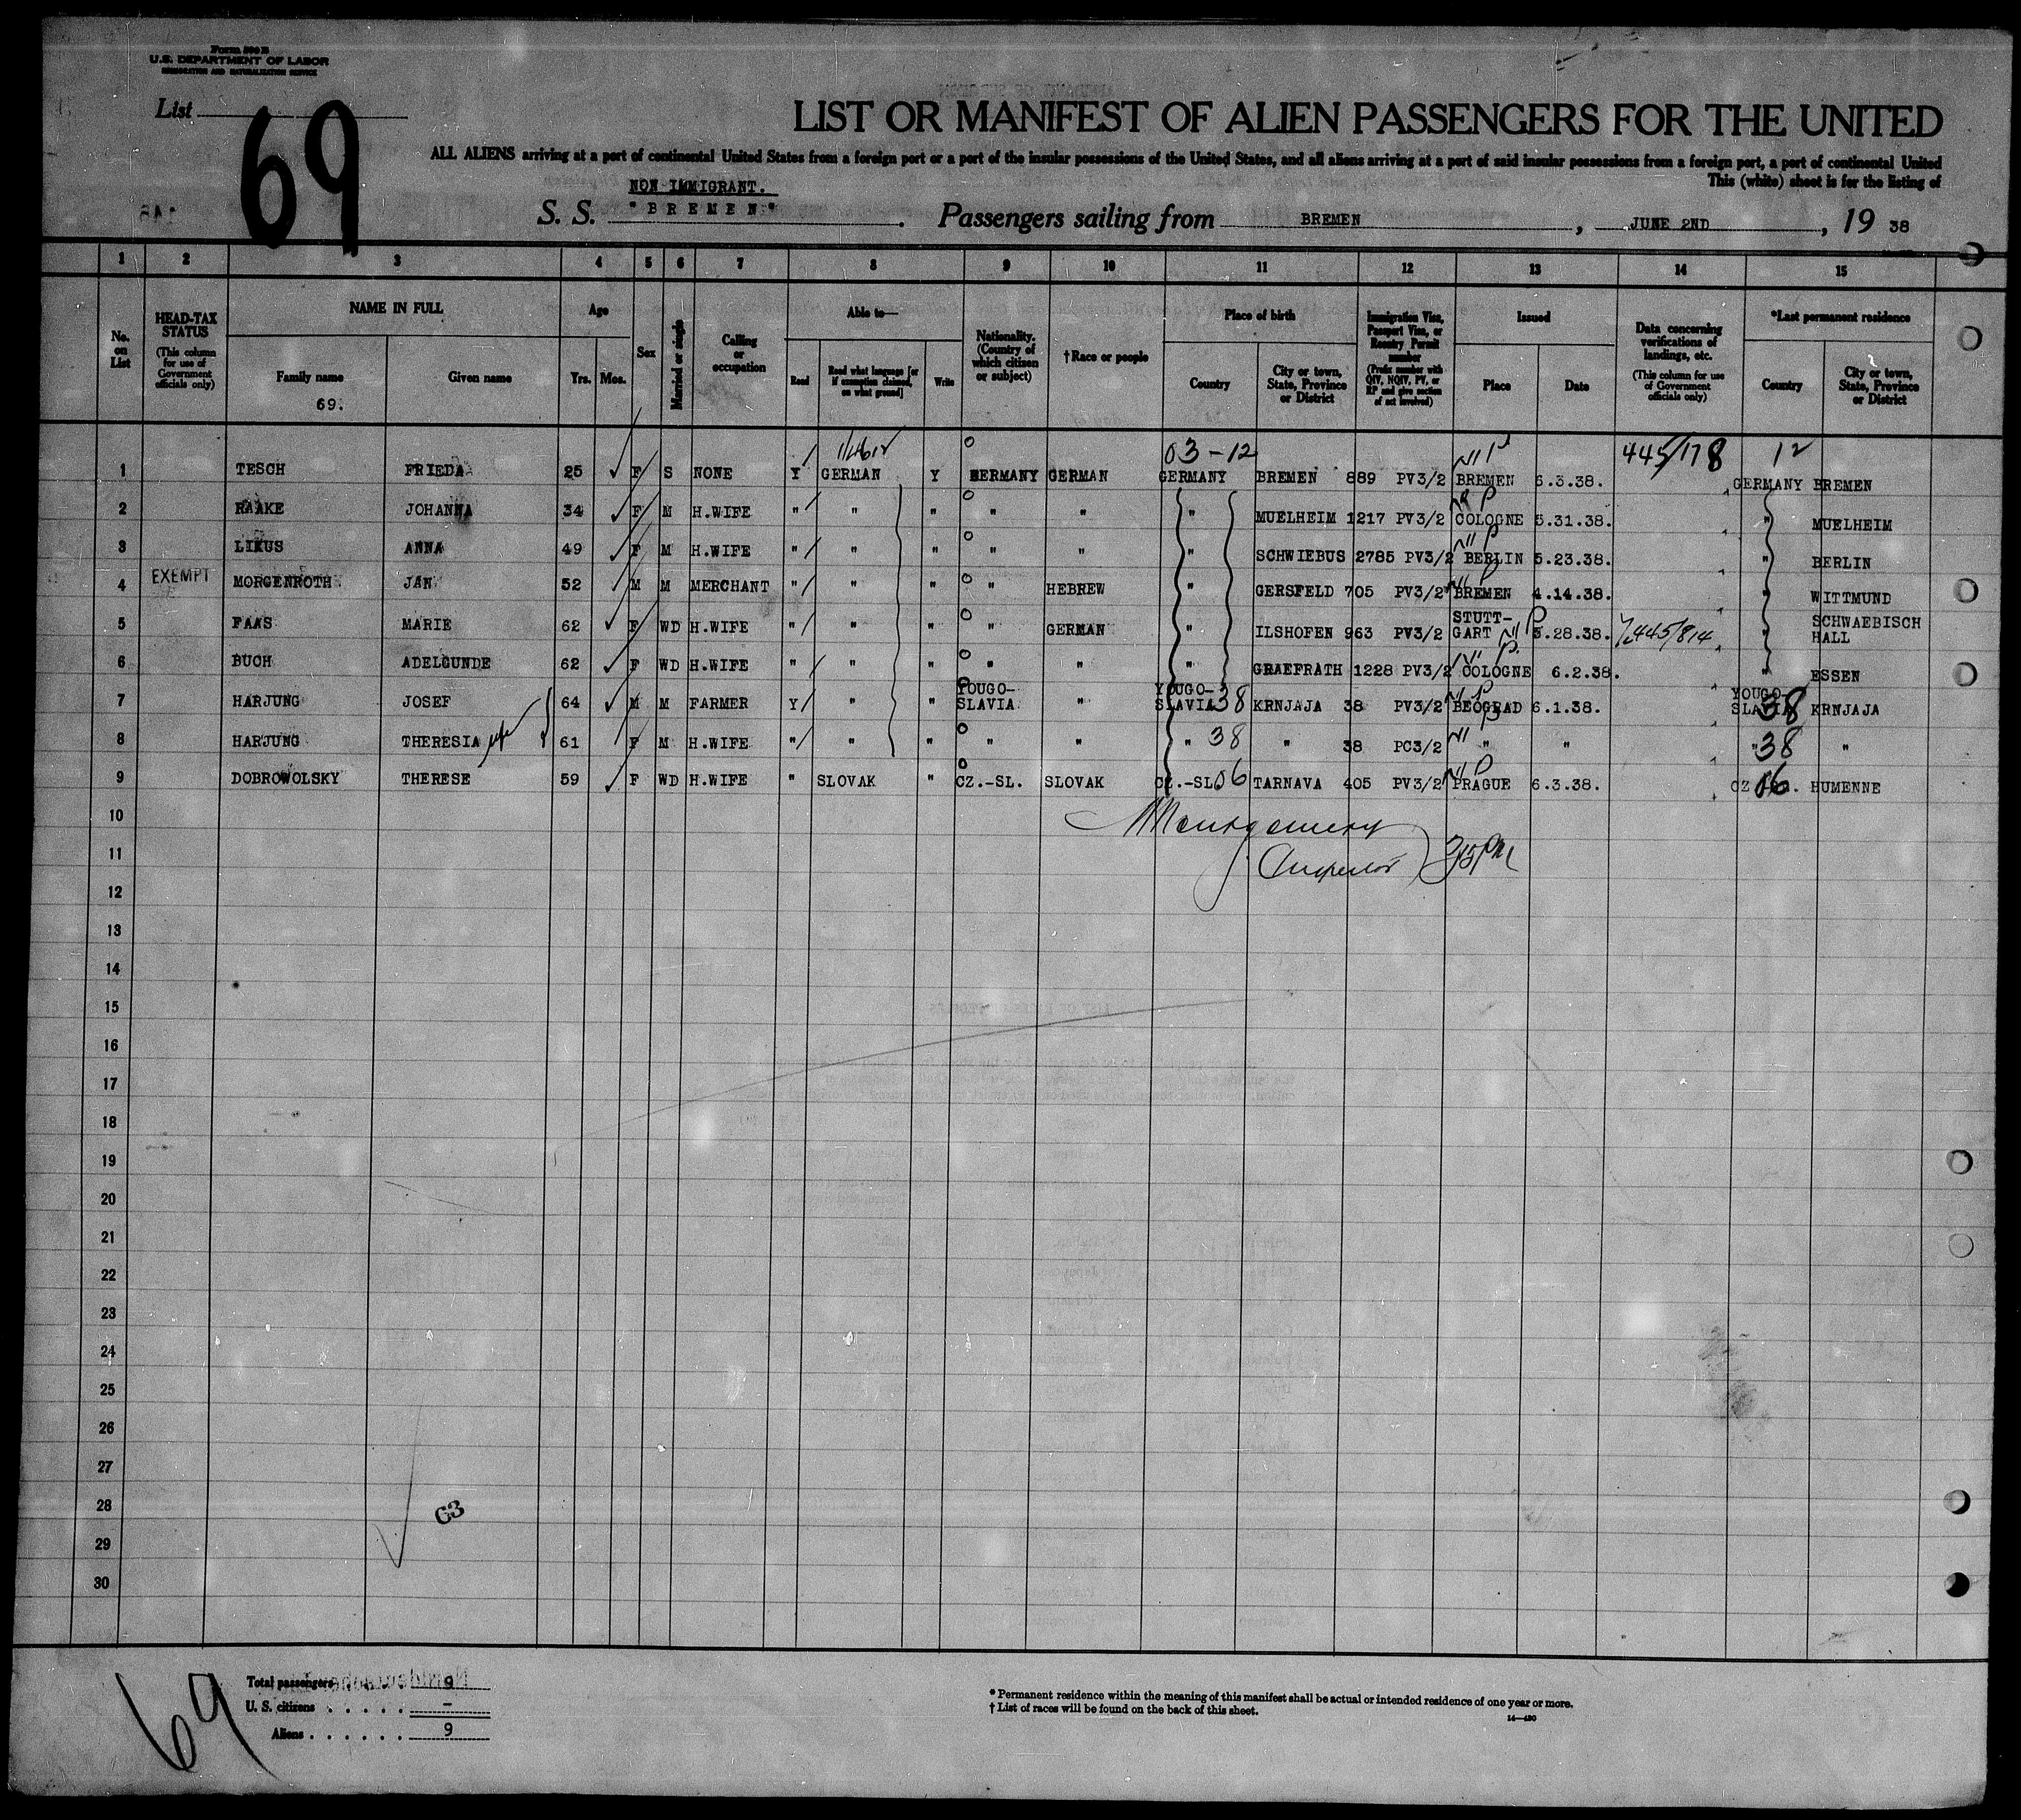 Form 500 B
U.S. DEPARTMENT OF LABOR
IMMIGRATION AND NATURALIZATION SERVICE
List 69
LIST OR MANIFEST OF ALIEN PASSENGERS FOR THE UNITED
ALL ALIENS arriving at a port of continental United States from a foreign port or a port of the insular possessions of the United States, and all aliens arriving at a port of said insular possessions from a foreign port, a port of continental United
This (white) sheet is for the listing of
NON IMMIGRANT.
S. S. "BREMEN". Passengers sailing from BREMEN, JUNE 2ND, 19 38
1 2 3 4 5 6 7 8 9 10 11 12 13 14 15
No. on List
HEAD-TAX STATUS (This column for use of Government officials only)
NAME IN FULL
Family name 69.
Given name
Age
Yrs. Mos.
Sex
Married or single
Calling or occupation
Able to—
Read
Read what language [or if exemption claimed, on what ground]
Write
Nationality. (Country of which citizen or subject)
†Race or people
Place of birth
Country
City or town, State, Province or District
Immigration Visa, Passport Visa, or Reentry Permit number (Prefix number with QIV, NQIV, PV, or RP and give section of act involved)
Issued
Place
Date
Data concerning verifications of landings, etc. (This column for use of Government officials only)
*Last permanent residence
Country
City or town, State, Province or District
03-12 445/178 12
1 TESCH FRIEDA 25 F S NONE Y GERMAN Y GERMANY GERMAN GERMANY BREMEN 889 PV3/2 BREMEN 6.3.38. GERMANY BREMEN
2 RAAKE JOHANNA 34 F M H.WIFE " " " " " " MUELHEIM 1217 PV3/2 COLOGNE 5.31.38. " MUELHEIM
3 LIKUS ANNA 49 F M H.WIFE " " " " " " SCHWIEBUS 2785 PV3/2 BERLIN 5.23.38. " BERLIN
4 EXEMPT MORGENROTH JAN 52 M M MERCHANT " " " " HEBREW " GERSFELD 705 PV3/2 BREMEN 4.14.38. " WITTMUND
5 FAAS MARIE 62 F WD H.WIFE " " " " GERMAN " ILSHOFEN 963 PV3/2 STUTT-GART 3.28.38. 445/814 " SCHWAEBISCH HALL
6 BUCH ADELGUNDE 62 F WD H.WIFE " " " " " " GRAEFRATH 1228 PV3/2 COLOGNE 6.2.38. " ESSEN
7 HARJUNG JOSEF 64 M M FARMER Y " " YOUGO-SLAVIA " YOUGO-SLAVIA 38 KRNJAJA 38 PV3/2 BEOGRAD 6.1.38. YOUGO-SLAVIA 38 KRNJAJA
8 HARJUNG THERESIA wife 61 F M H.WIFE " " " " " " 38 " 38 PC3/2 " " " 38 "
9 DOBROWOLSKY THERESE 59 F WD H.WIFE " SLOVAK " CZ.-SL. SLOVAK CZ.-SL. 06 TARNAVA 405 PV3/2 PRAGUE 6.3.38. CZ 06 HUMENNE
10 Montgomery
11 Inspector
12
13
14
15
16
17
18
19
20
21
22
23
24
25
26
27
28 63
29
30
69
Total passengers 9
U. S. citizens . . . . . -
Aliens . . . . . . 9
* Permanent residence within the meaning of this manifest shall be actual or intended residence of one year or more.
† List of races will be found on the back of this sheet.
14—480